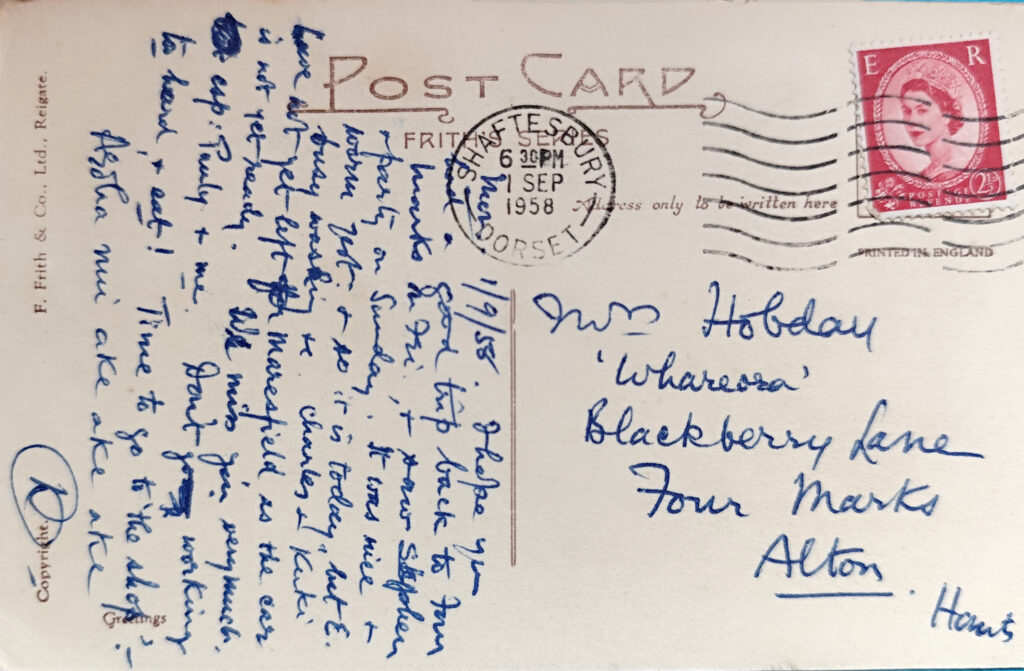 POST CARD
FRITH'S SERIES
SHAFTESBURY
6 30PM
1 SEP
1958
DORSET
E R
POSTAGE
REVENUE
2½D
Address only to be written here
PRINTED IN ENGLAND
F. Frith & Co., Ltd., Reigate.
Copyright.
Greetings
Mon. 1/9/58. I hope you
had a good trip back to Four
Marks on Fri, & saw Stephen
& party on Sunday. It was nice &
warm yest. & so it is today, but E.
busy washing &c Charles & Kuki
have not yet left for Maresfield as the car
is not yet ready. We miss you very much.
esp: & me. Don't go working
to hard, & eat! Time to go to "the shop"!
Aroha nui ake ake ake
K
Mrs Hobday
'Whareora'
Blackberry Lane
Four Marks
Alton.
Hants